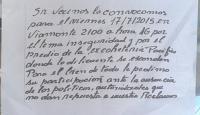 Sr Vecinos lo convocamos
para el viernes 17/7/2015 en
Viamonte 2100 a hora 16 por
el tema inseguridad y por el
predio de la Exceholerie Pacifico
donde lo delicuente se esconden
Por el bien de todo le pedimo
su participacion ante la ausencia
de los politicos, autoridades que
no dan repuesta a nuestro Reclamo